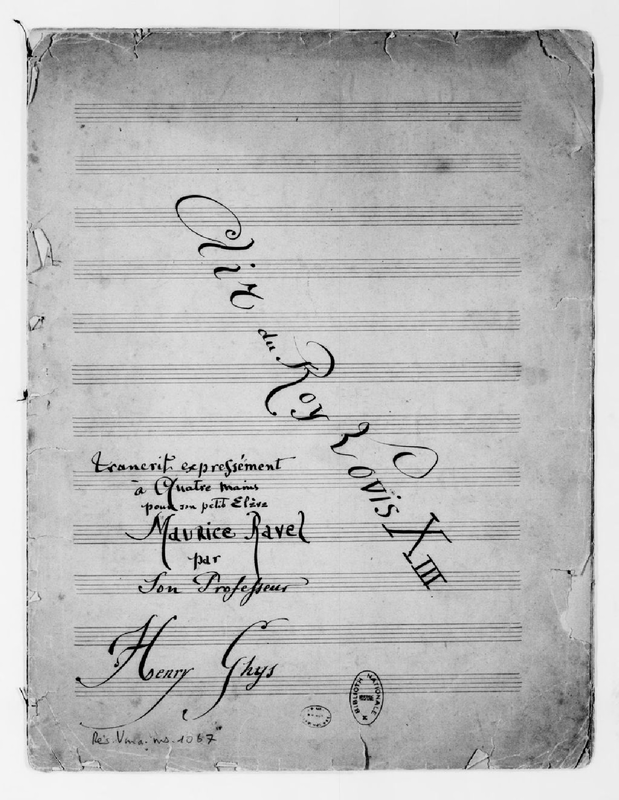 Air
du Roy Louis XIII
trancrit expressément
à Quatre mains
pour son petit Elève
Maurice Ravel
par
Son Professeur
Henry Ghys
BIBLIOTH NATIONALE
Rés. Vma. ms. 1087